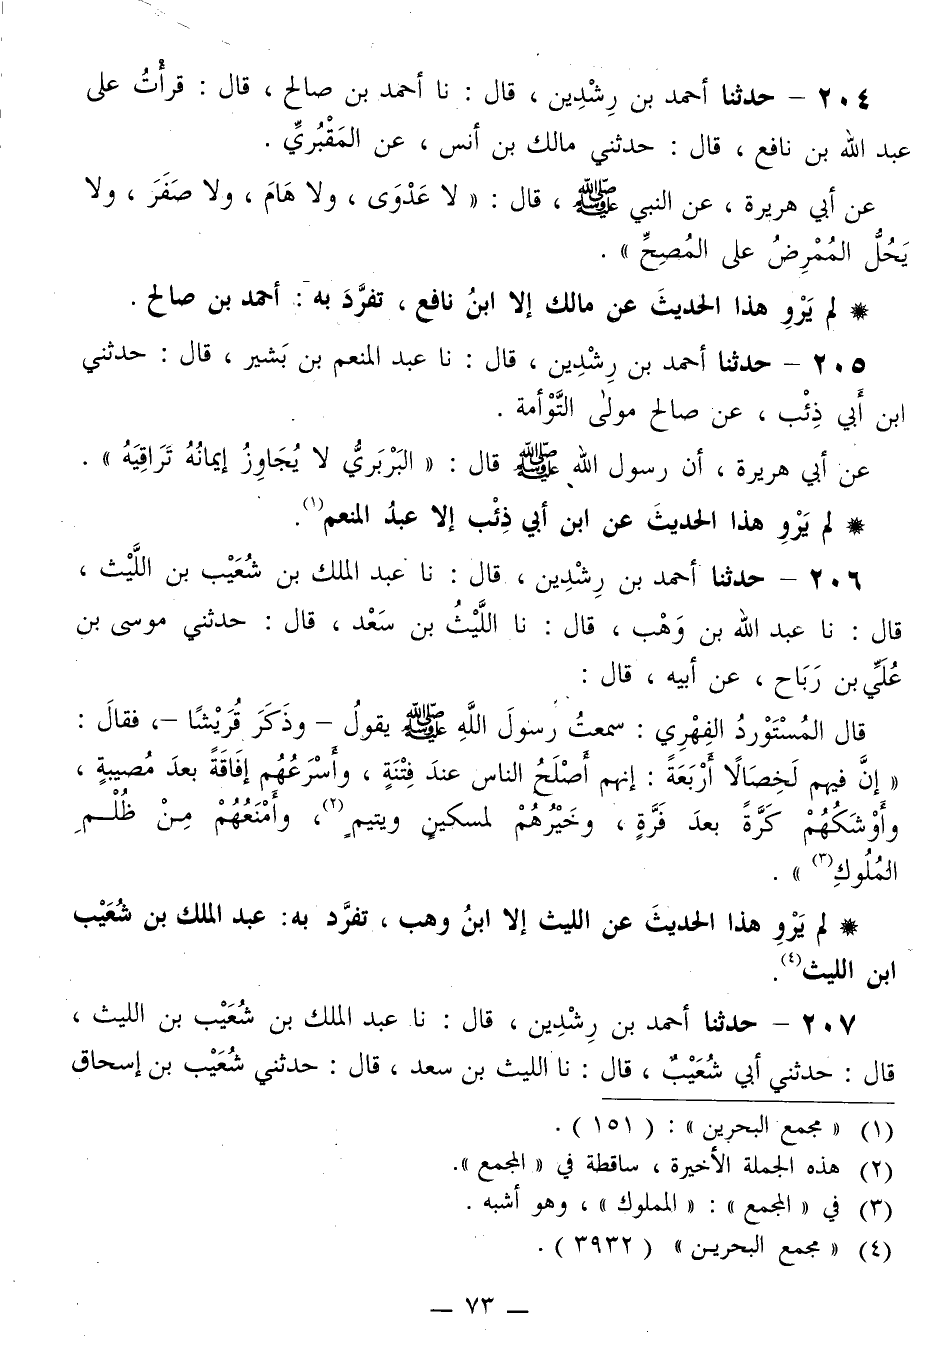 ٢٠٤ – حدثنا أحمد بن رِشْدِين ، قال : نا أحمد بن صالح ، قال : قرأْتُ على
عبد الله بن نافع ، قال : حدثني مالك بن أنس ، عن المَقْبُريِّ .
عن أبي هريرة ، عن النبي ﷺ ، قال : « لا عَدْوَى ، ولا هَامَ ، ولا صَفَرَ ، ولا
يَحُلُّ المُمْرِضُ على المُصِحِّ » .
✷ لم يَرْوِ هذا الحديثَ عن مالك إلا ابنُ نافع ، تفرَّدَ به : أحمد بن صالح .
٢٠٥ – حدثنا أحمد بن رِشْدِين ، قال : نا عبد المنعم بن بَشير ، قال : حدثني
ابن أَبي ذِئْب ، عن صالح مولٰى التَّوْأمة .
عن أبي هريرة ، أن رسول الله ﷺ قال : « البَرْبَريُّ لا يُجَاوِزُ إيمانُهُ تَرَاقِيَهُ » .
✷ لم يَرْوِ هذا الحديثَ عن ابن أبي ذِئْب إلا عبدُ المنعم(١).
٢٠٦ – حدثنا أحمد بن رِشْدِين ، قال : نا عبد الملك بن شُعَيْب بن اللَّيْث ،
قال : نا عبد الله بن وَهْب ، قال : نا اللَّيْثُ بن سَعْد ، قال : حدثني موسى بن
عُلَيِّ بن رَبَاح ، عن أبيه ، قال :
قال المُسْتَوْردُ الفِهْرِي : سمعتُ رسولَ اللَّهِ ﷺ يقولُ – وذَكَرَ قُرَيْشًا –، فقالَ :
« إنَّ فيهم لَخِصَالًا أَرْبَعَةً : إنهم أَصْلَحُ الناس عندَ فِتْنَةٍ ، وأَسْرَعُهُم إفَاقَةً بعدَ مُصيبةٍ ،
وأَوْشَكُهُمْ كَرَّةً بعدَ فَرَّةٍ ، وخَيْرُهُمْ لمسكينٍ ويتيمٍ(٢)، وأَمْنَعُهُمْ مِـنْ ظُلْـمِ
المُلُوكِ(٣) » .
✷ لم يَرْوِ هذا الحديثَ عن الليث إلا ابنُ وهب ، تفرَّد به: عبد الملك بن شُعَيْب
ابن الليث(٤).
٢٠٧ – حدثنا أحمد بن رِشْدِين ، قال : نا عبد الملك بن شُعَيْب بن الليث ،
قال : حدثني أبي شُعَيْبٌ ، قال : نا الليث بن سعد ، قال : حدثني شُعَيْب بن إسحاق
(١) « مجمع البحرين » : ( ١٥١ ) .
(٢) هذه الجملة الأخيرة ، ساقطة في « المجمع ».
(٣) في « المجمع » : « المملوك » ، وهو أشبه .
(٤) « مجمع البحريـن » ( ٣٩٣٢ ) .
– ٧٣ –